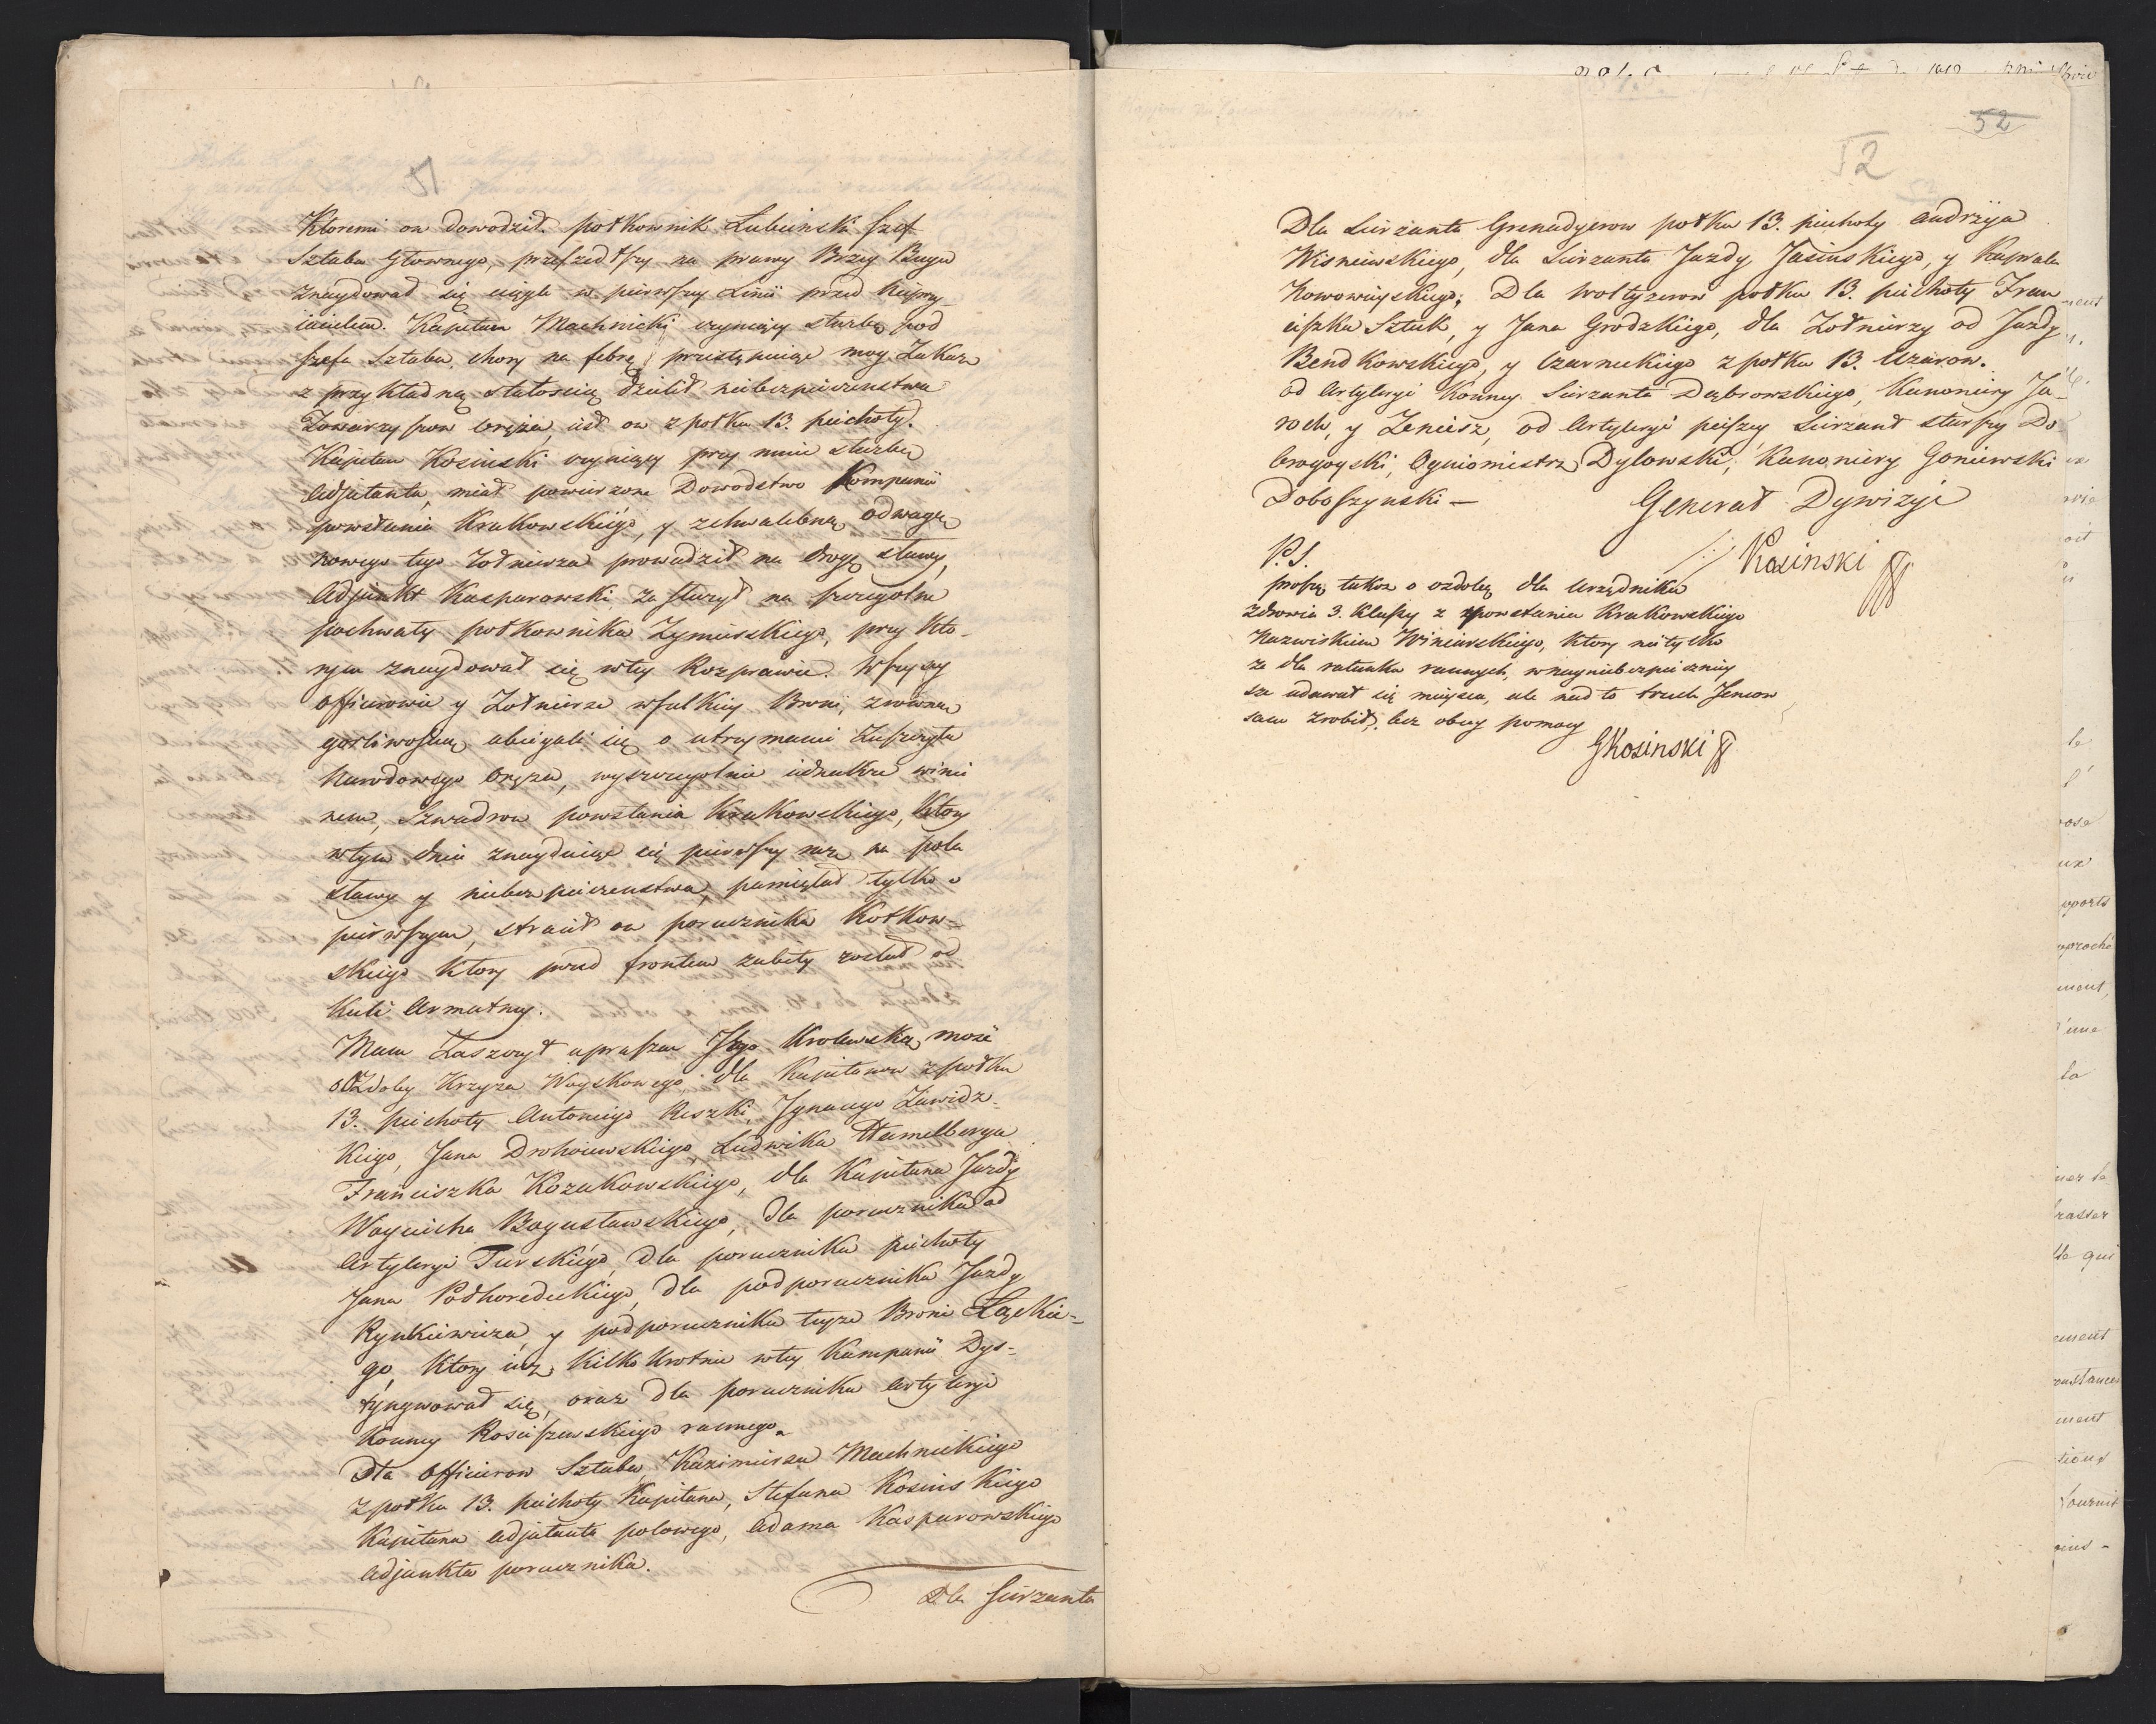 51
Ktoremi on dowodził. połkownik Lubieński szef
Sztabu Głownego, przeszedłszy na prawy Brzeg Bugu
znaydował się ciągle w pierwszey Linii przed Nieprzy
iacielem. Kapitan Machnicki czyniący służbę pod
szefa Sztabu, chory na febrę
z przykładną stałością dzielił niebezpieczenstwa
Towarzyszow Oręża, iest on z połku 13. piechoty.
Kapitan Kosinski czyniący przy mnie służbę
Adjutanta, miał powierzone Dowodztwo Kompanii
powstania Krakowskiego, y z chwalebną odwagą
nowego tego żołnierza prowadził na drogę sławy,
Adjunkt Kasparowski zasłużył na szczegolne
pochwały połkownika Zymirskiego, przy Kto-
rym znaydował się wtey Rozprawie. Wszyscy
officerowie y Żołnierze wszelkiey Broni, z rowną
gorliwością ubiegali się o utrzymanie Zaszczytu
Narodowego Oręża, wyszczegolnić iednakże winie
nem, Szwadron powstania Krakowskiego, Ktory
wtym dniu znayduiąc się pierwszy raz na polu
sławy y niebezpieczenstwa, pamiętał tylko o
pierwszym, stracił on porucznika Kotkow-
skiego Ktory przed frontem zabity został od
Kuli Armatney.
Mam Zaszczyt upraszać Jego Krolewską mość
o Ozdoby Krzyża Woyskowego dla Kapitanow z połku
13. piechoty Antoniego Reszki, Jgnacego Zawidz-
Kiego, Jana Drohoiewskiego, Ludwika Hamelberga
Franciszka Kozakowskiego, dla Kapitana Jazdy
Woyciecha Bogusławskiego, dla porucznika od
Artyleryi Turskiego, dla porucznika piechoty
Jana Podhoredeckiego, dla podporucznika Jazdy
Rynkiewicza, y podporucznika teyże Broni Łąckie-
go, Ktory iuż Kilko Krotnie wtey Kampanii Dys-
tyngwował się, oraz dla porucznika Artyleryi
Konney Rosciszewskiego rannego.
Dla Officerow Sztabu, Kazimierza Machnickiego
z połku 13. piechoty Kapitana, Stefana Kosinskiego
Kapitana adjutanta polowego, Adama Kasparowskiego
Adjunkta porucznika.
Dla sierzanta
52
52
Dla Sierzanta Grenadyerow połku 13. piechoty Andrzeja
Wisniewskiego, dla Sierzanta Jazdy Jasinskiego, y Kaprala
Nowowieyskiego; Dla Woltyzerow połku 13. piechoty Fran
ciszka Sztuk, y Jana Grodzkiego, dla Żołnierzy od Jazdy
Bendkowskiego, y Czarneckiego z połku 13. Uzarow.
od Artyleryi Konney Sierzanta Dąbrowskiego, Kanoniery Ja-
roch, y Zeniesz, od Artyleryi pieszey Sierzant starszy Do
brogoyski, Ogniomistrz Dylowski, Kanoniery Goniewski
Doboszynski —
Generał Dywizyi
Kosinski
P.S.
proszę także o ozdobę dla Urzędnika
Zdrowia 3. Klassy z powstania Krakowskiego
Nazwiskiem Winiarskiego, Ktory nietylko
że dla ratunku rannych, w nayniebezpiecznie
sze udawał się mieysca, ale nadto trzech Jencow
sam zrobił, bez obcey pomocy
GKosinski